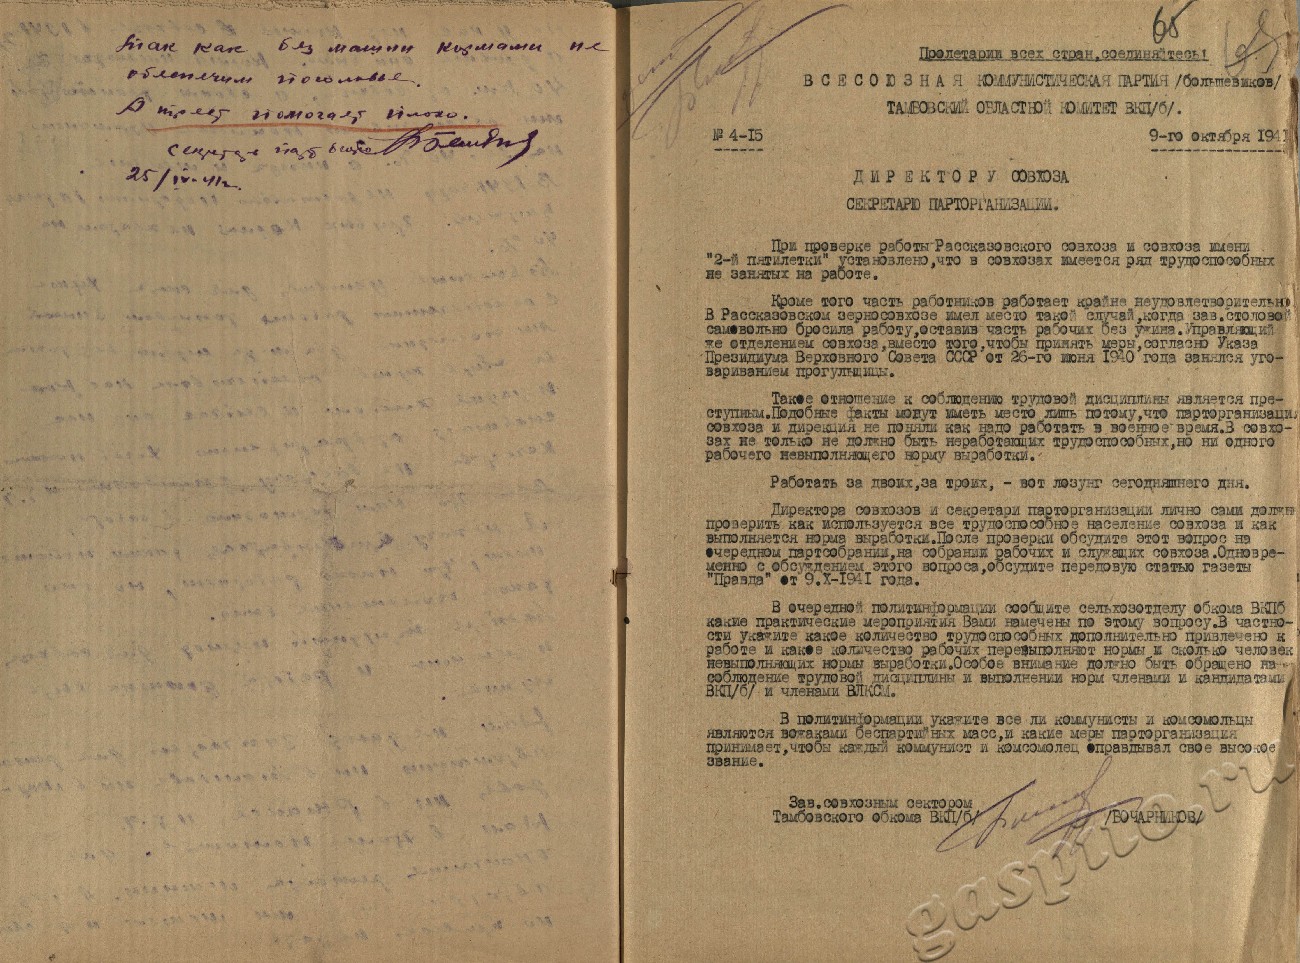 так как без машин кормами не
обеспечим поголовье.
А трест помогает плохо.
секретарь парт бюро
25/IV-41г.
65
Пролетарии всех стран,соединяйтесь!
ВСЕСОЮЗНАЯ КОММУНИСТИЧЕСКАЯ ПАРТИЯ /большевиков/
ТАМБОВСКИЙ ОБЛАСТНОЙ КОМИТЕТ ВКП/б/.
№ 4-15
9-го октября 1941
ДИРЕКТОРУ СОВХОЗА
СЕКРЕТАРЮ ПАРТОРГАНИЗАЦИИ.
При проверке работы Рассказовского совхоза и совхоза имени
"2-й пятилетки" установлено,что в совхозах имеется ряд трудоспособных
не занятых на работе.
Кроме того часть работников работает крайне неудовлетворительно
В Рассказовском зерносовхозе имел место такой случай,когда зав.столовой
самовольно бросила работу,оставив часть рабочих без ужина.Управляющий
же отделением совхоза,вместо того,чтобы принять меры,согласно Указа
Президиума Верховного Совета СССР от 26-го июня 1940 года занялся уго-
вариванием прогульщицы.
Такое отношение к соблюдению трудовой дисциплины является пре-
ступным.Подобные факты могут иметь место лишь потому,что парторганизация
совхоза и дирекция не поняли как надо работать в военное время.В совхо-
зах не только не должно быть неработающих трудоспособных,но ни одного
рабочего невыполняющего норму выработки.
Работать за двоих,за троих, - вот лозунг сегодняшнего дня.
Директора совхозов и секретари парторганизации лично сами должн
проверить как используется все трудоспособное население совхоза и как
выполняется норма выработки.После проверки обсудите этот вопрос на
очередном партсобрании,на собрании рабочих и служащих совхоза.Одновре-
менно с обсуждением этого вопроса,обсудите передовую статью газеты
"Правда" от 9.X-1941 года.
В очередной политинформации сообщите сельхозотделу обкома ВКПб
какие практические мероприятия Вами намечены по этому вопросу.В частно-
сти укажите какое количество трудоспособных дополнительно привлечено к
работе и какое количество рабочих перевыполняют нормы и сколько человек
невыполняющих нормы выработки.Особое внимание должно быть обращено на
соблюдение трудовой дисциплины и выполнении норм членами и кандидатами
ВКП/б/ и членами ВЛКСМ.
В политинформации укажите все ли коммунисты и комсомольцы
являются вожаками беспартийных масс,и какие меры парторганизация
принимает,чтобы каждый коммунист и комсомолец оправдывал свое высокое
звание.
Зав.совхозным сектором
Тамбовского обкома ВКП/б/ /БОЧАРНИКОВ/
gaspito.ru